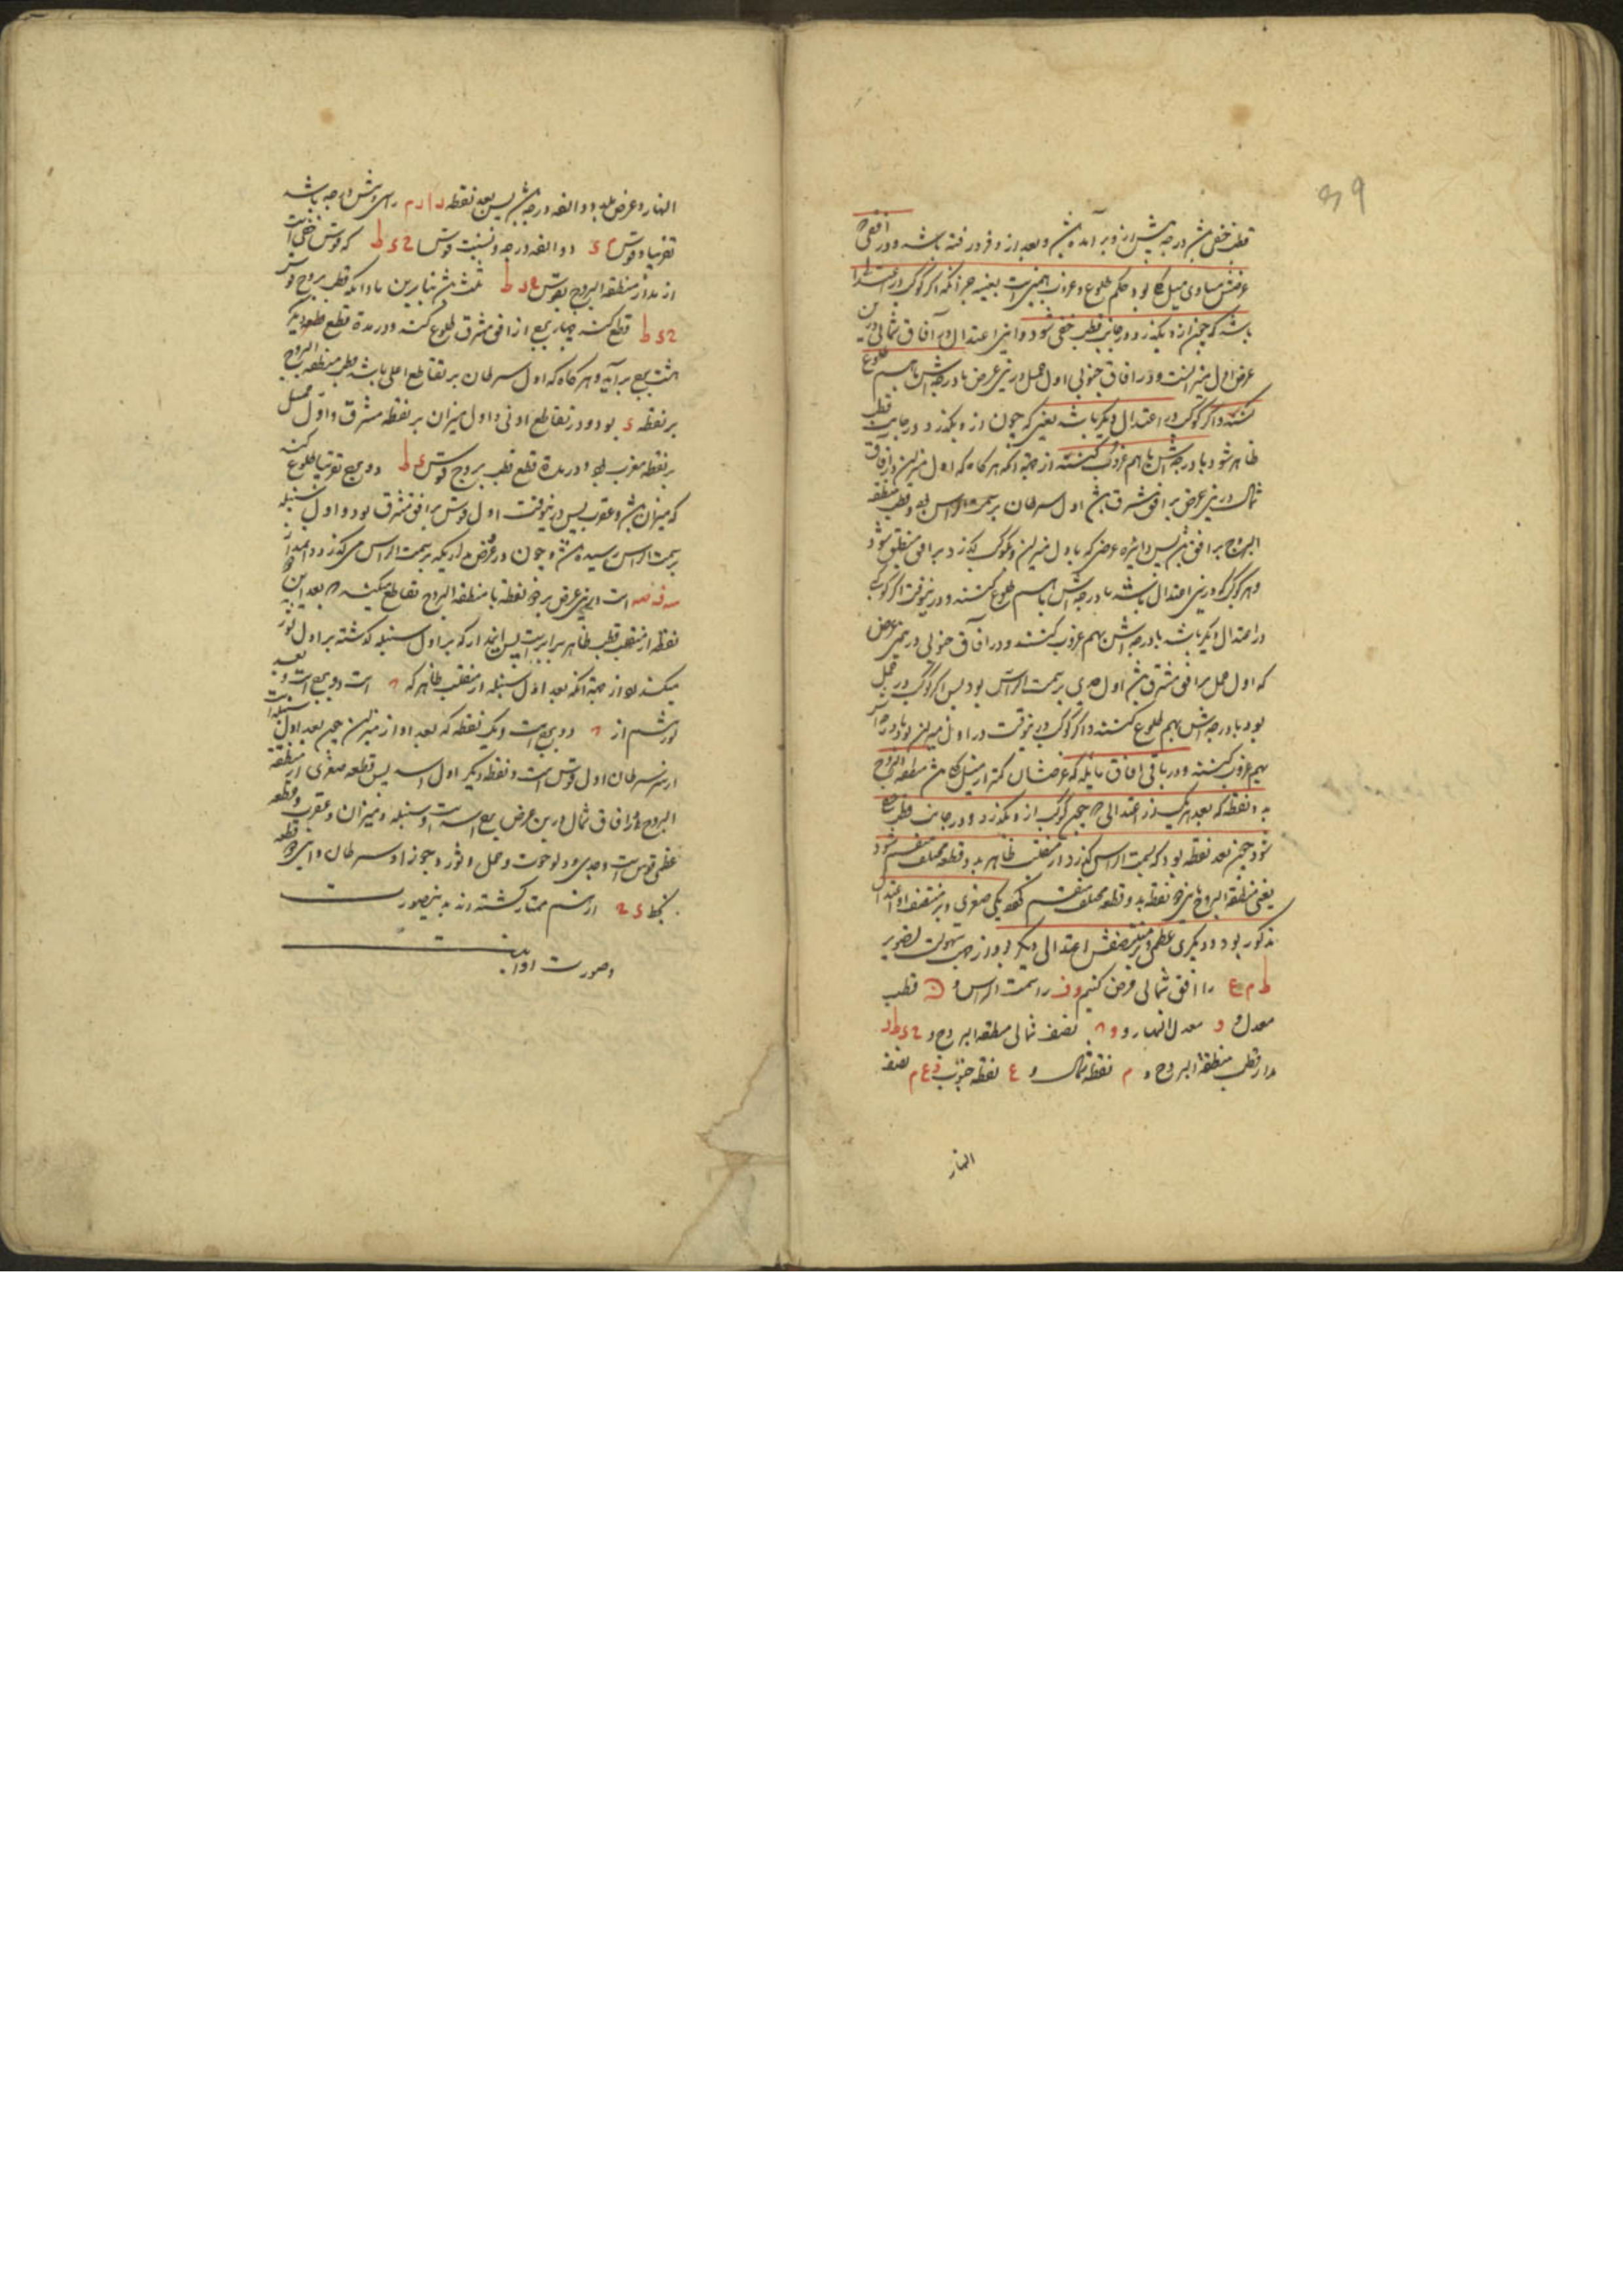 ۴۹
قطب خفی باشد درجه‌اش پیش ازو برآمده باشد و بعد ازو فرو رفته باشد و در افقی که
عرضش مساوی میل کلی بود حکم طلوع و غروب همین است بعینه جز آنکه اگر کوکب در اعتدالی
باشد که چون ازو بگذرد در جانب قطب خفی شود و این اعتدال در آفاق شمالی درین
عرض اول میزانست و در آفاق جنوبی اول حمل درین عرض با درجه‌اش باهم طلوع
کنند و اگر کوکب در اعتدال دیگر باشد یعنی که چون ازو بگذرد در جانب قطب
ظاهر شود با درجه‌اش باهم غروب کنند از جهة آنکه هرگاه که اول میزان در آفاق
شمال درین عرض بر افق مشرق باشد اول سرطان بر سمت الراس بود و قطب منطقة
البروج بر افق باشد پس دایره عرض که باول میزان و بکوکب بگذرد بر افق منطبق شود
و هر کوکب که درین اعتدال باشد با درجه‌اش باهم طلوع کنند و درینوقت اگر کوکب
در اعتدال دیگر باشد با درجه‌اش بهم غروب کنند و در آفاق جنوبی در همین عرض
که اول حمل بر افق مشرق باشد اول جدی بر سمت الراس بود پس اگر کوکب در حمل
بود با درجه‌اش بهم طلوع کنند و اگر کوکب درینوقت در اول میزان بود با درجه‌اش
بهم غروب کنند و در باقی آفاق مایله که عرضشان کمتر از میل کلی باشد منطقة البروج
بدو نقطه که بعد هر یک از اعتدالی که چون کوکب ازو بگذرد در جانب قطب خفی
شود چون بعد نقطه بود که بسمت الراس گذرد از منقلب ظاهر بدو قطعه مختلف منقسم شود
یعنی منطقة البروج باین دو نقطه بدو قطعه مختلف منقسم گردد یکی صغری و بر منتصف او اعتدال
مذکور بود و دیگری عظمی و بر منتصفش اعتدالی دیگر بود از جهت سهولت تصویر
ط م ع را افق شمالی فرض کنیم و ف را سمت الراس و قطب
معدل و معدل النهار و نصف شمالی منطقة البروج و
مدار قطب منطقة البروج و م نقطه شمال و ع نقطه جنوب و ع م نصف
النهار
النهار و عرض بلد دوازده درجه باشد پس بعد نقطه از م سی و شش درجه باشد
تقریبا و قوس دوازده درجه و نسبت قوس که قوس خفی است
از مدار منطقة البروج بقوس ثلث باشد بنابرین مادامکه قطب بروج قوس
قطع کند چهار برج از افق مشرق طلوع کند و در مدة قطع قطعه دیگر
هشت برج برآید و هرگاه که اول سرطان بر تقاطع اعلی باشد قطب منطقة البروج
بر نقطه بود و در تقاطع ادنی و اول میزان بر نقطه مشرق و اول حمل
بر نقطه مغرب بود و در مدة قطع قطب بروج قوس دو برج تقریبا طلوع کند
که میزان باشد و عقرب پس درینوقت اول قوس بر افق مشرق بود و اول سنبله
بر سمت الراس رسیده باشد و چون در فرض مداریکه بر سمت الراس می‌گذرد
است و درین عرض بر دو نقطه با منطقة البروج تقاطع میکند که بعد این دو
نقطه از منقلب قطب ظاهر برابرست پس این مدار که بر اول سنبله گذشته بر اول ثور
میگذرد از جهة آنکه بعد اول سنبله از منقلب ظاهر که است دو برج است و بعد
ثور هم از دو برج است و یک نقطه که بعد او از میزان چون بعد اول سنبله است
از سرطان اول قوس است و نقطه دیگر اول اسد پس قطعه صغری از منطقة
البروج در آفاق شمال درین عرض برج اسد است و سنبله و میزان و عقرب و قطعه
عظمی قوس است و جدی و دلو حوت و حمل و ثور و جوزا و سرطان و این دو قطعه
بخط از هم ممتاز گشته‌اند بدینصورت
و صورت او اینست